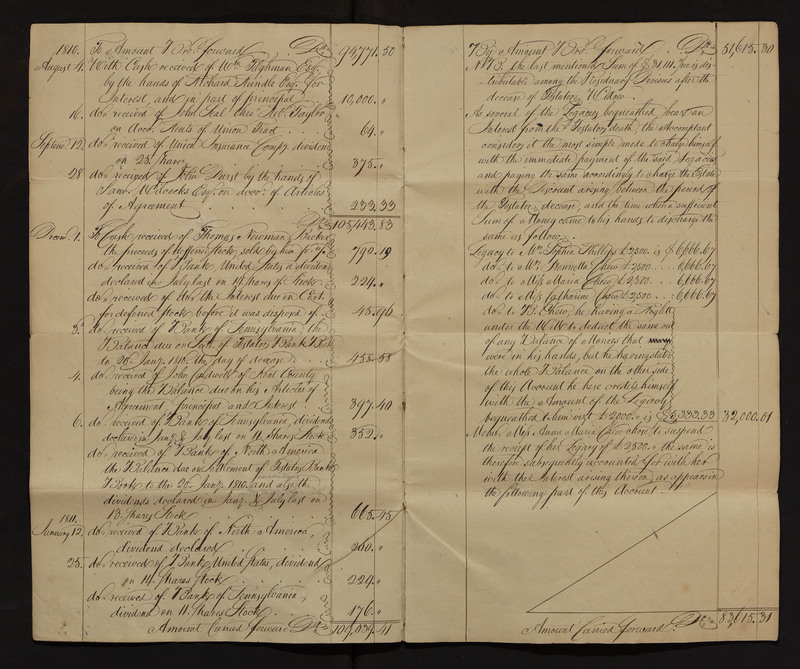 1810. To Amount Bro.t forward Drs. 94771.50
August 4. With Cash received of Wm. Tilghman Esqr.
by the hands of Richard Rundle Esqr. for
Interest, and in part of principal 10,000. "
16. do. received of John
on Acco. Rents of Union 64. "
Septem. 12. do. received of Union Insurance Compy. dividend
on 25 Shares 375. "
28 do. received of John by the hands of
Saml. Wilcocks Esqr. on Acco. of Articles
of Agreement 233.33
Drs. 105,443.83
Decem. 1. To Cash received of Thomas Newman Broker
the proceeds of deferred Stock, sold by him 792.19
do. received of Bank United States a dividend
declared in July last on 14 Shares of Stock 224. "
do. received of the Interest due on Cert.
for deferred Stock before it was disposed of 45.96
3. do. received of Bank of Pennsylvania, the
Balance due on Settt. of Testators Bank Book
to 20 Jany. 1810. the day of decease 458.58
4. do. received of John of Kent County
being the Balance due on his Articles of
Agreement, principal and Interest 397.40
6. do. received of Bank of Pennsylvania, dividends
declared in Jany. & July last on 11 Shares Stock 352. "
do. received of Bank of North America
the Balance due on Settlement of Testators Bank
Book to the 20 Jany. 1810. and also the
dividends declared in Jany. & July last on
13 Shares Stock 665.45
1811.
January 12. do. received of Bank of North America,
dividend declared 260. "
25. do. received of Bank United States, dividend
on 14 Shares Stock 224. "
do. received of Bank of Pennsylvania,
dividend on 11 Shares Stock 176. "
Amount Carried forward Drs. 109,039.41
By Amount Bro.t forward Drs. 51,615.30
NB. The last mentioned Sum of $31,111. is dis-
tributable among the Residuary Devisees after the
decease of Testators Widow.
As several of the Legacies bequeathed bear an
Interest from the Testators death, the Accomptant
considers it the most simple mode to charge himself
with the immediate payment of the said Legacies
and paying the same accordingly to charge the Estate
with the Discount arising between the period of
the Testators decease, and the time when a sufficient
Sum of Money came to his hands to discharge the
same as follow.
Legacy to Mrs. Sophia Phillips £2500. is $6,666.67
do. to Mrs. Henrietta Chew £2500 6,666.67
do. to Miss Maria Chew £2500 6,666.67
do. to Miss Catharine Chew £2500 6,666.67
do. to B. Chew, he having a Right
under the Will to deduct the same out
of any Balance of Monies that
were in his hands, but he having stated
the whole Balance on the other side
of this Account he here credits himself
with the Amount of the Legacy
bequeathed to him viz. £2000. is $5,333.33 32,000.01
Miss Anna Maria Chew chose to suspend
the receipt of her Legacy of £2500. the same is
therefore subsequently accounted for with her
with the Interest arising thereon, as appears in
the following part of this Account.
Amount Carried forward Drs. 83,615.31